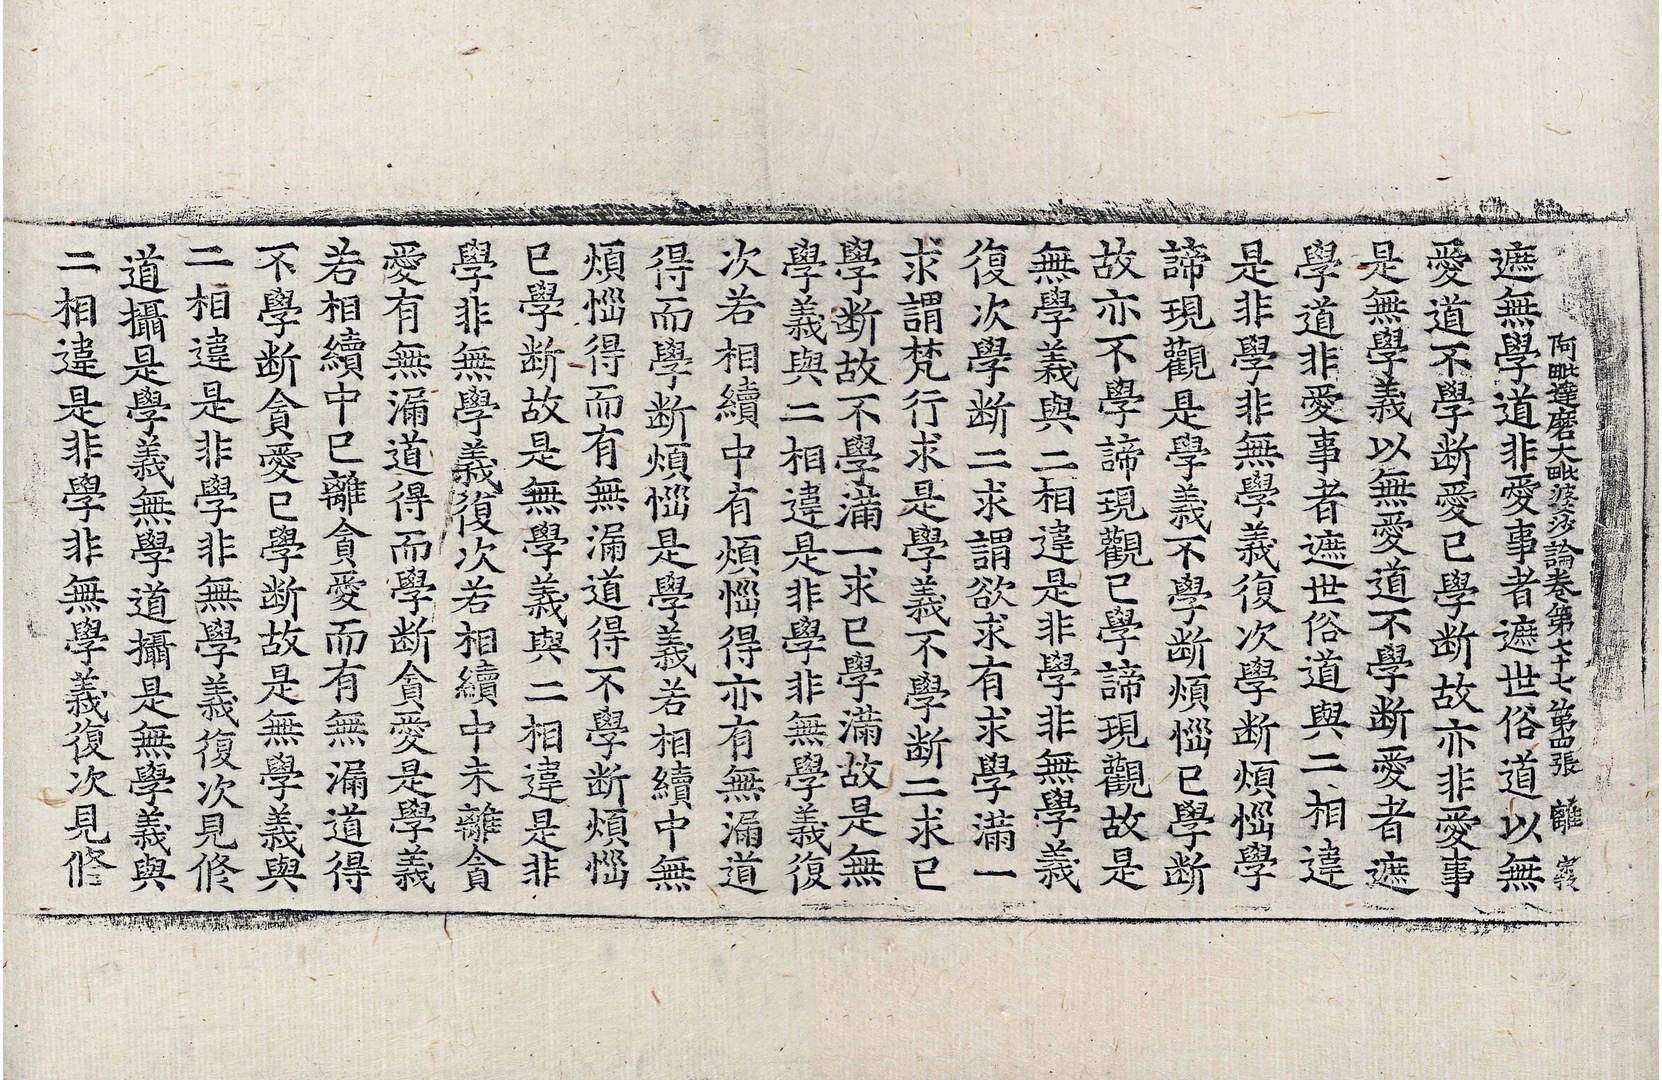 阿毗達磨大毗婆沙論卷第七十七 第四張 離
遮無學道非愛事者遮世俗道以無
愛道不學断愛已學断故亦非愛事
是無學義以無愛道不學断愛者遮
學道非愛事者遮世俗道與二相違
是非學非無學義復次學断煩惱學
諦現觀是學義不學断煩惱已學断
故亦不學諦現觀已學諦現觀故是
無學義與二相違是非學非無學義
復次學断二求謂欲求有求學滿一
求謂梵行求是學義不學断二求已
學断故不學滿一求已學滿故是無
學義與二相違是非學非無學義復
次若相續中有煩惱得亦有無漏道
得而學断煩惱是學義若相續中無
煩惱得而有無漏道得不學断煩惱
已學断故是無學義與二相違是非
學非無學義復次若相續中未離貪
愛有無漏道得而學断貪愛是學義
若相續中已離貪愛而有無漏道得
不學断貪愛已學断故是無學義與
二相違是非學非無學義復次見修
道攝是學義無學道攝是無學義與
二相違是非學非無學義復次見修